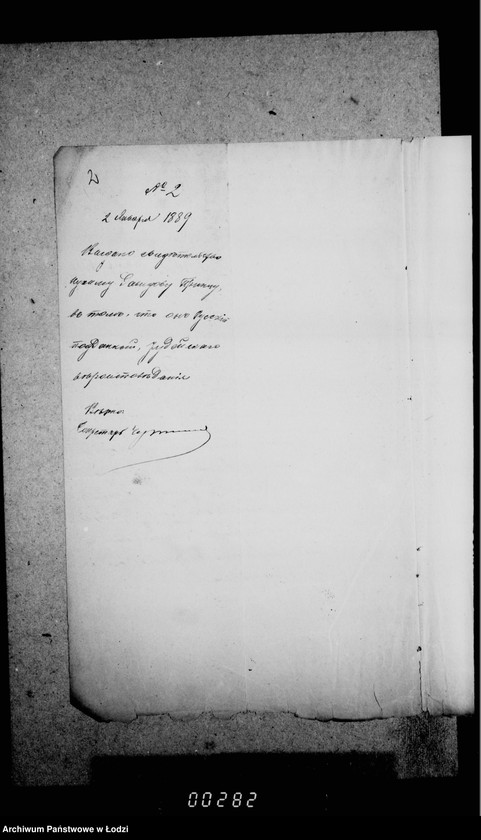 № 2
2 Января 1889
Выдано свидетельство
въ томъ, что онъ Русскій
подданный, іудейскаго
вѣроисповѣданія
Вѣрно
Секретарь
00282
Archiwum Państwowe w Łodzi